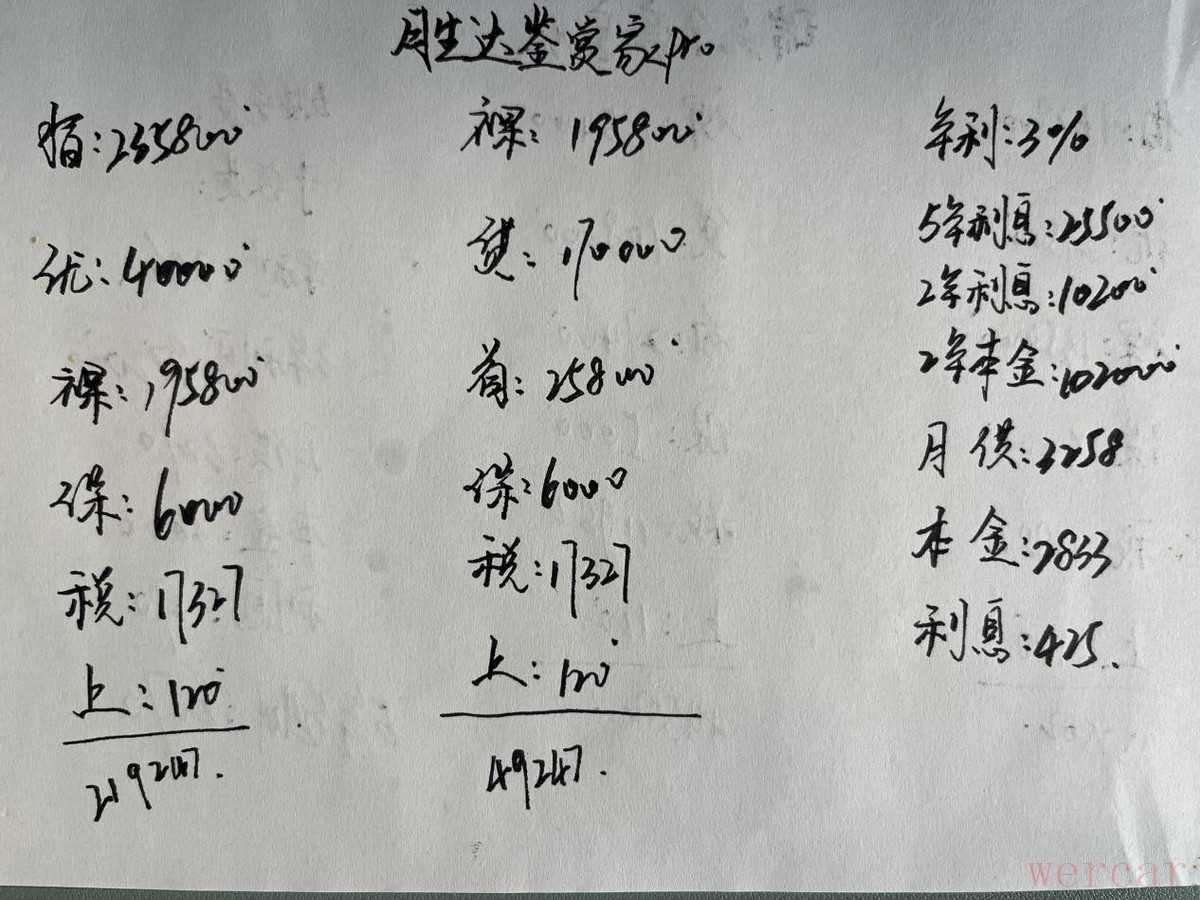 周生达鉴赏家pro
指:235800
优:40000
裸:195800
保:6000
税:17327
上:120
219247.
裸:195800
贷:170000
首:25800
保:6000
税:17327
上:120
49247.
年利:3%
5年利息:25500
2年利息:10200
2年本金:102000
月供:3258
本金:2833
利息:425.
wercar